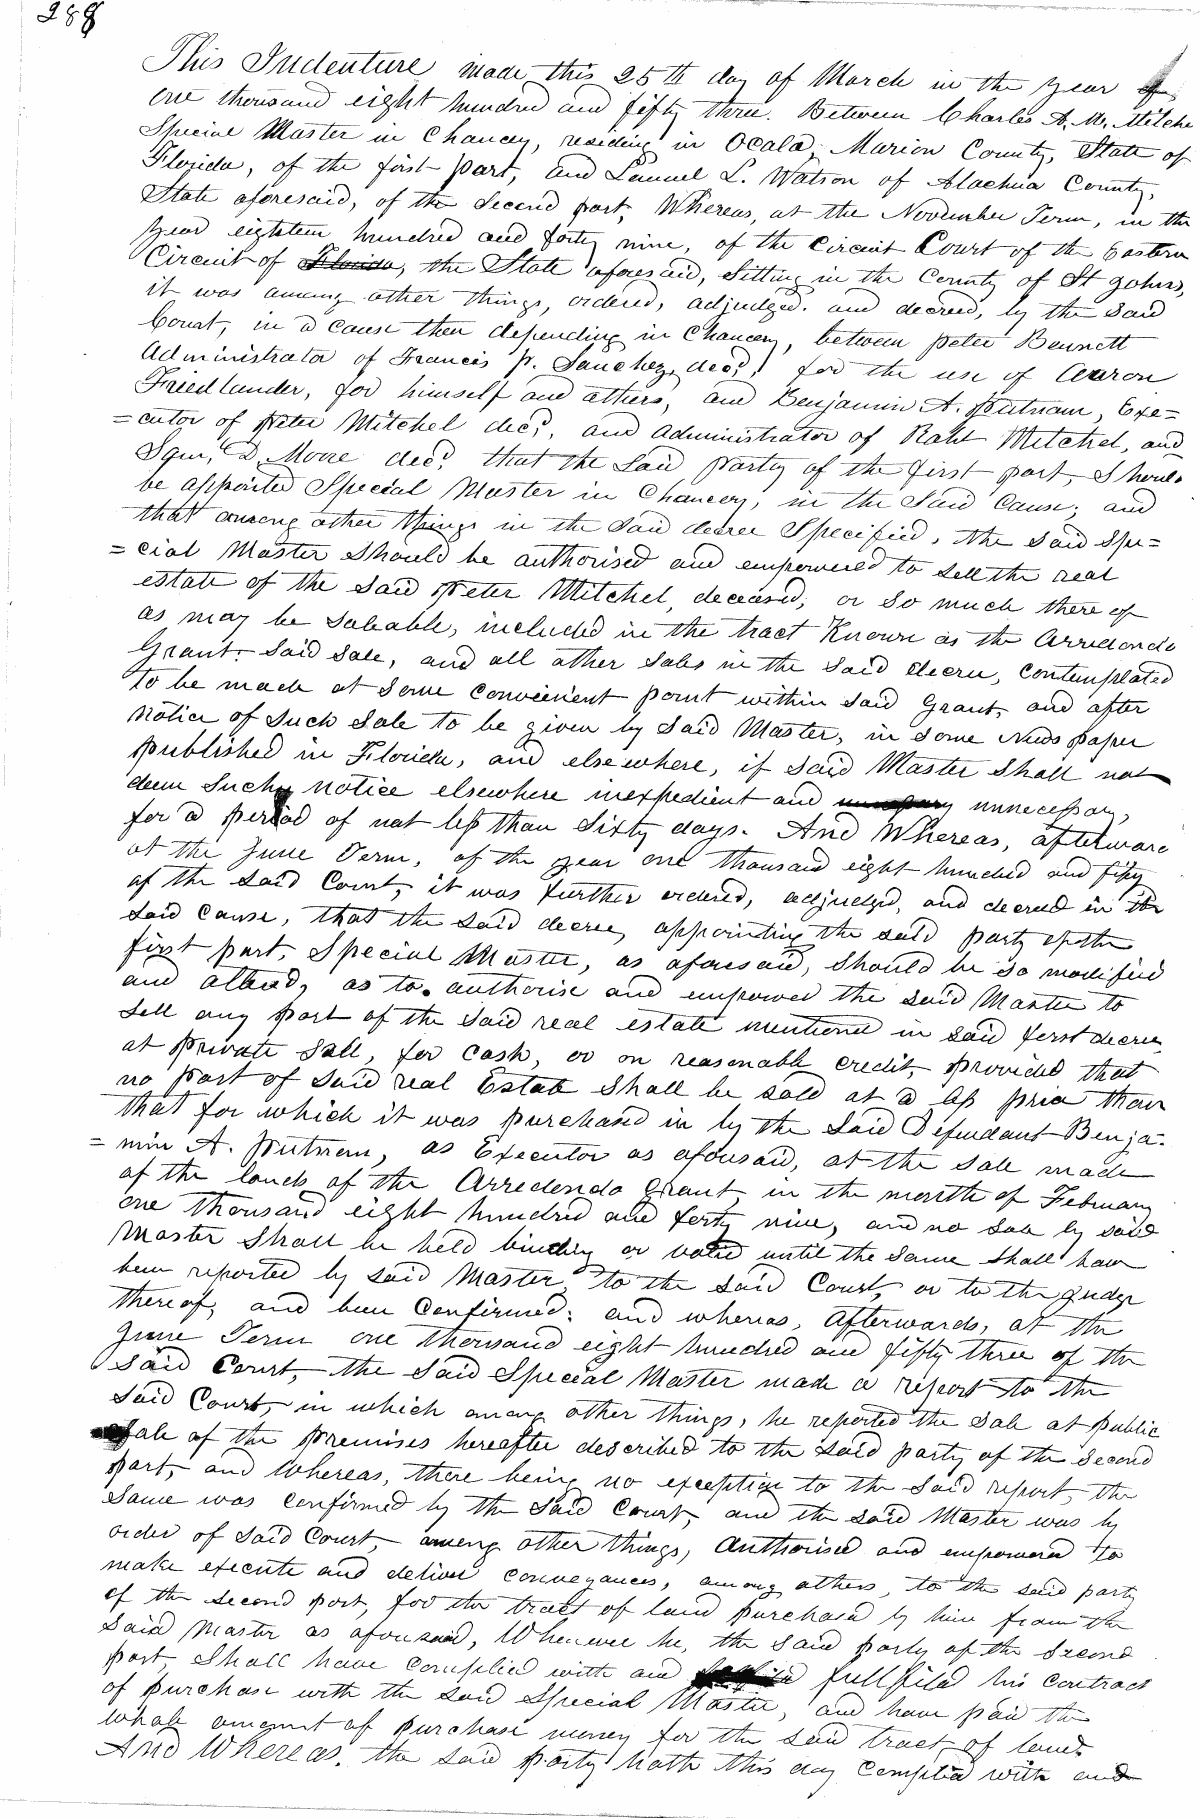 288
This Indenture made this 25th day of March in the year of
one thousand eight hundred and fifty three. Between Charles A. M. Mitche
Special Master in Chancey, residing in Ocala, Marion County, State of
Florida, of the first part, and Lemuel L. Watson of Alachua County,
State aforesaid, of the Second part, Whereas, at the November Term, in the
year eighteen hundred and forty nine, of the Circuit Court of the Eastern
Circuit of Florida, the State aforesaid, Sitting in the County of St Johns,
it was among other things, ordered, adjudged. and decreed, by the said
Court, in a cause then depending in Chancery, between Peter Bennett
Administrator of Francis P. Sanchez, decd, for the use of Aaron
Friedlander, for himself and others, and Benjamin A. Putnam, Exe=
=cutor of Peter Mitchel decd, and administrator of Robt Mitchel, and
D. Moore decd, that the said party of the first part, should
be appointed Special Master in Chancery, in the said cause; and
that among other things in the said decree Specified, the said Spe=
=cial Master should be authorised and empowered to sell the real
estate of the said Peter Mitchel, deceased, or so much there of
as may be saleable, included in the tract Known as the Arredondo
Grant. Said sale, and all other sales in the said decree, contemplated
to be made at some convenient point within said Grant, and after
notice of such sale to be given by said Master, in some News paper
published in Florida, and elsewhere, if said Master shall not
deem such notice elsewhere inexpedient and unnecessary,
for a period of not less than Sixty days. And Whereas, afterward
at the June Term, of the year one thousand eight hundred and fifty
of the said Court, it was further ordered, adjudged, and decreed in the
said cause, that the said decree, appointing the said party of the
first part, Special Master, as aforesaid, should be so modified
and altered, as to authorise and empower the said Master to
sell any part of the said real estate mentioned in said first decree,
at private sale, for cash, or on reasonable credit, provided that
no part of said real Estate shall be sold at a less price than
that for which it was purchased in by the said Defendant Benja=
=min A. Putnam, as Executor as aforesaid, at the sale made
of the lands of the Arredondo Grant in the month of February
one thousand eight hundred and forty nine, and no sale by said
Master shall be held binding or valid until the same shall have
been reported by said Master, to the said Court, or to the Judge
thereof, and been confirmed; and whereas, afterwards, at the
June Term one thousand eight hundred and fifty three of the
said Court, the said Special Master made a report to the
said Court, in which among other things, he reported the sale at public
sale of the premises hereafter described to the said party of the second
part, and Whereas, there being no exception to the said report, the
same was confirmed by the said Court, and the said Master was by
order of said Court, among other things, authorised and empowered to
make execute and deliver conveyances, among others, to the said party
of the second part, for the tract of land purchased by him from the
said Master as aforesaid, Whenever he, the said party of the second
part, shall have complied with and fullfiled his contract
of purchase with the said Special Master, and have paid the
whole amount of purchase money for the said tract of land
And Whereas, the said party hath this day complied with and